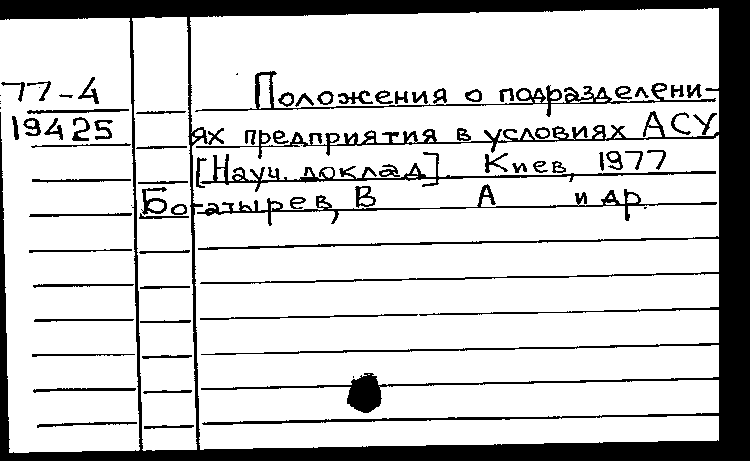 77-4 Положения о подразделени-
19425 ях предприятия в условиях АСУ
[Науч. доклад]. Киев, 1977
Богатырев, В А и др.